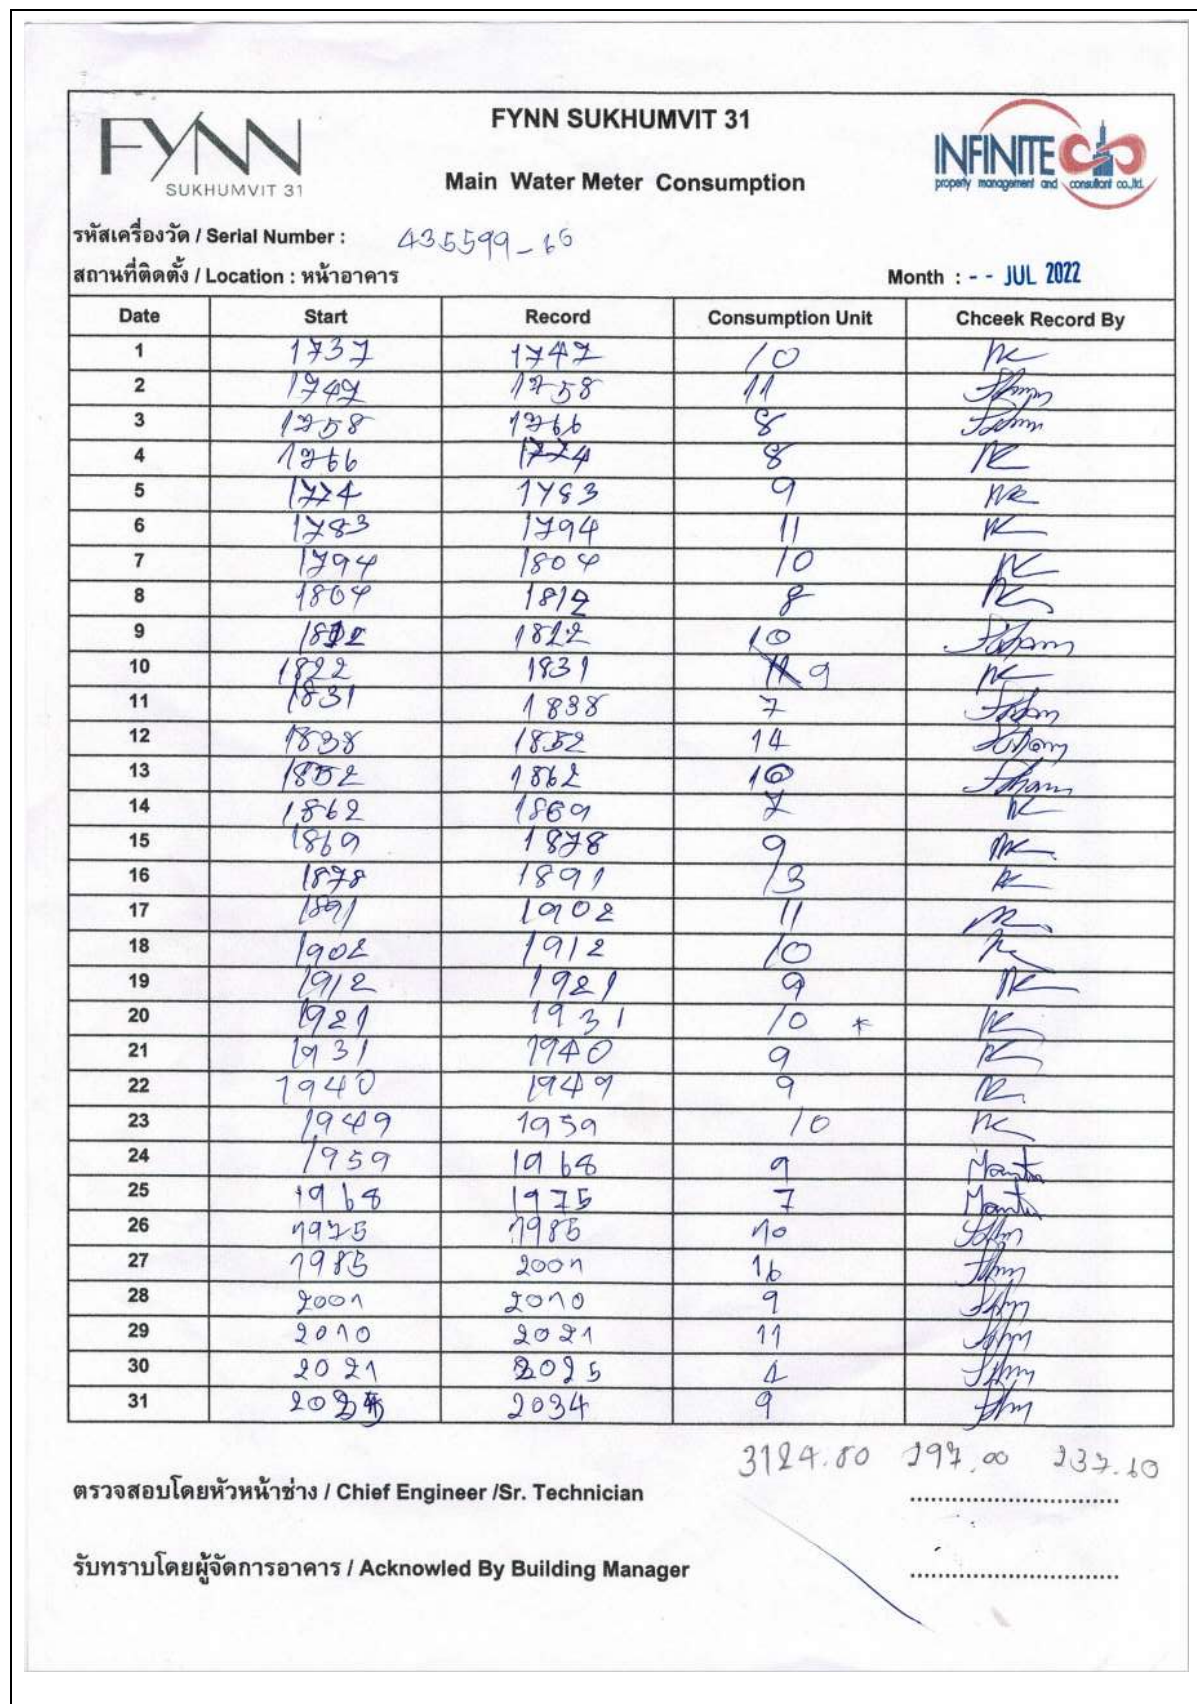 FYNN
SUKHUMVIT 31
FYNN SUKHUMVIT 31
Main Water Meter Consumption
INFINITE
property management and consultant co.,ltd.
รหัสเครื่องวัด / Serial Number : 435599-16
สถานที่ติดตั้ง / Location : หน้าอาคาร Month : - - JUL 2022
Date Start Record Consumption Unit Chceek Record By
1 1737 1747 10
2 1747 1758 11
3 1758 1766 8
4 1766 1774 8
5 1774 1783 9
6 1783 1794 11
7 1794 1804 10
8 1804 1812 8
9 1812 1822 10
10 1822 1831 9
11 1831 1838 7
12 1838 1852 14
13 1852 1862 10
14 1862 1869 7
15 1869 1878 9
16 1878 1891 13
17 1891 1902 11
18 1902 1912 10
19 1912 1921 9
20 1921 1931 10 *
21 1931 1940 9
22 1940 1949 9
23 1949 1959 10
24 1959 1968 9
25 1968 1975 7
26 1975 1985 10
27 1985 2001 16
28 2001 2010 9
29 2010 2021 11
30 2021 2025 4
31 2025 2034 9
3124.80 297.00 237.60
ตรวจสอบโดยหัวหน้าช่าง / Chief Engineer /Sr. Technician ..............................
รับทราบโดยผู้จัดการอาคาร / Acknowled By Building Manager ..............................